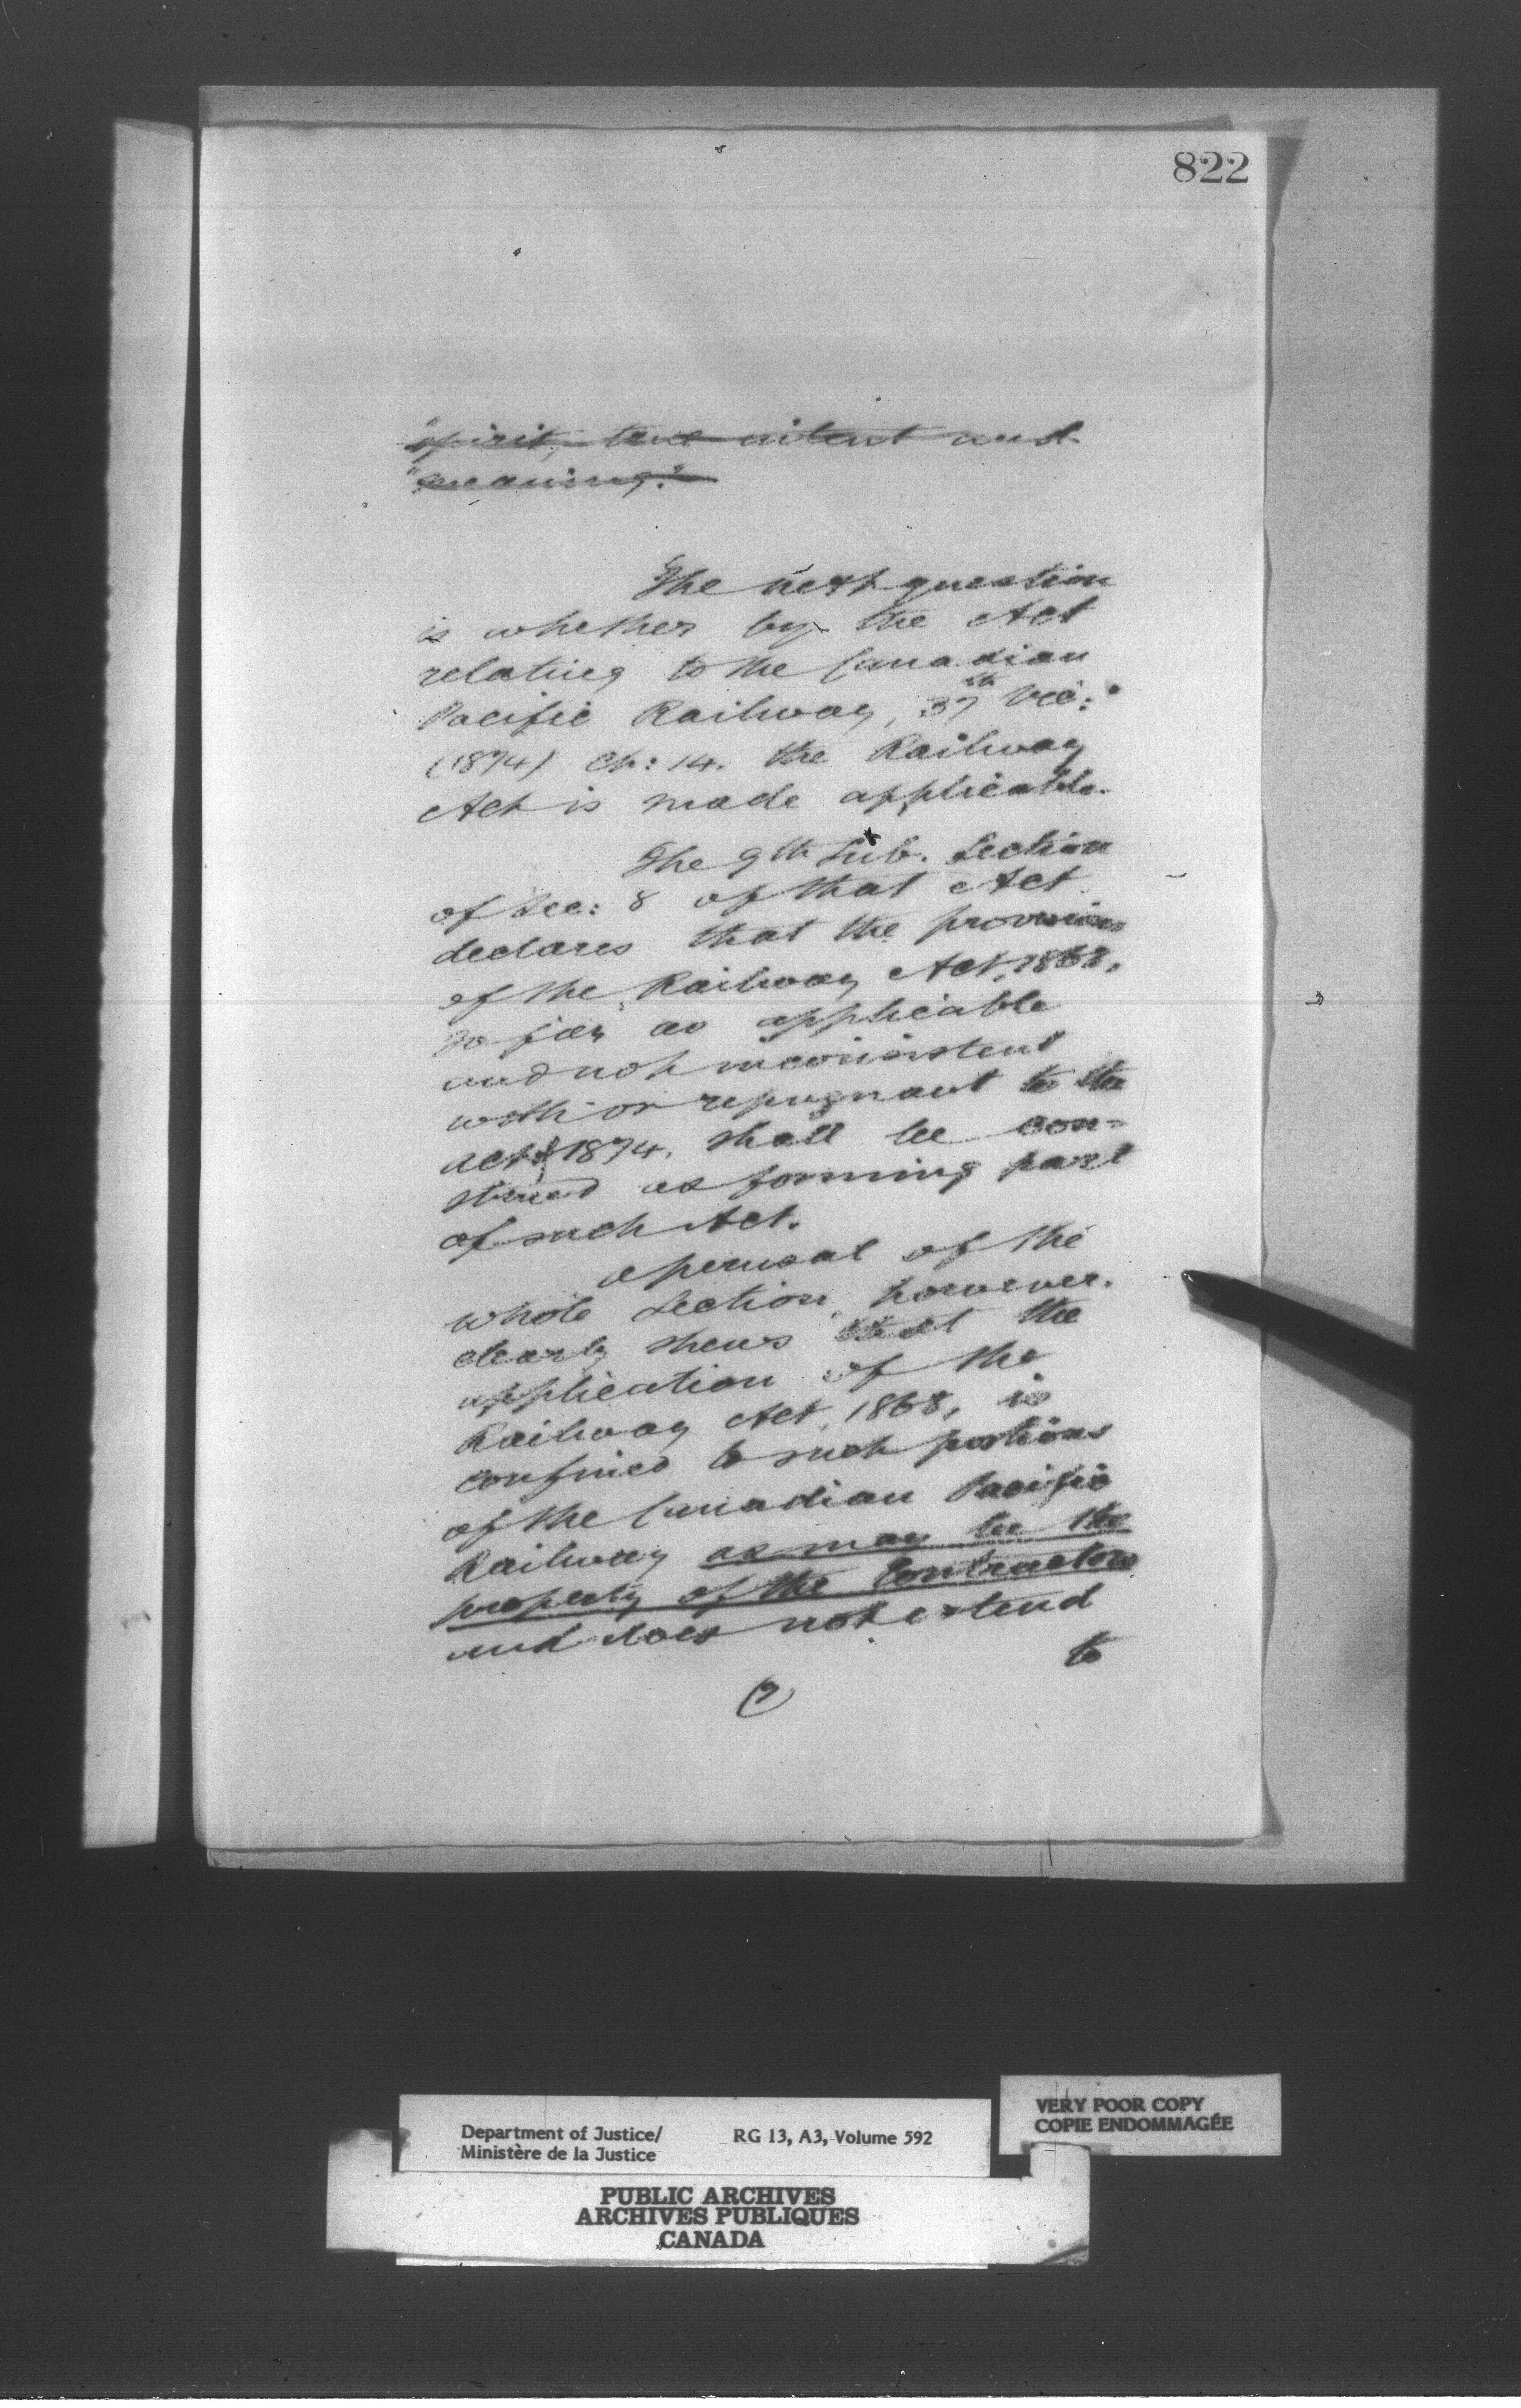 822
"spirit, true intent and
"meaning."
The next question
is whether by the Act
relating to the Canadian
Pacific Railway, 37th Vic:
(1874) Ch: 14. the Railway
Act is made applicable.
The 9th Sub. Section
of Sec: 8 of that Act
declares that the provisions
of the Railway Act, 1868,
so far as applicable
and not inconsistent
with or repugnant to the
act of 1874, shall be con-
strued as forming part
of such Act.
A perusal of the
whole Section, however,
clearly shews that the
application of the
Railway Act, 1868, is
confined to such portions
of the Canadian Pacific
Railway as may be the
property of the Contractors
and does not extend
to
(7)
Department of Justice/
Ministère de la Justice
RG 13, A3, Volume 592
VERY POOR COPY
COPIE ENDOMMAGÉE
PUBLIC ARCHIVES
ARCHIVES PUBLIQUES
CANADA